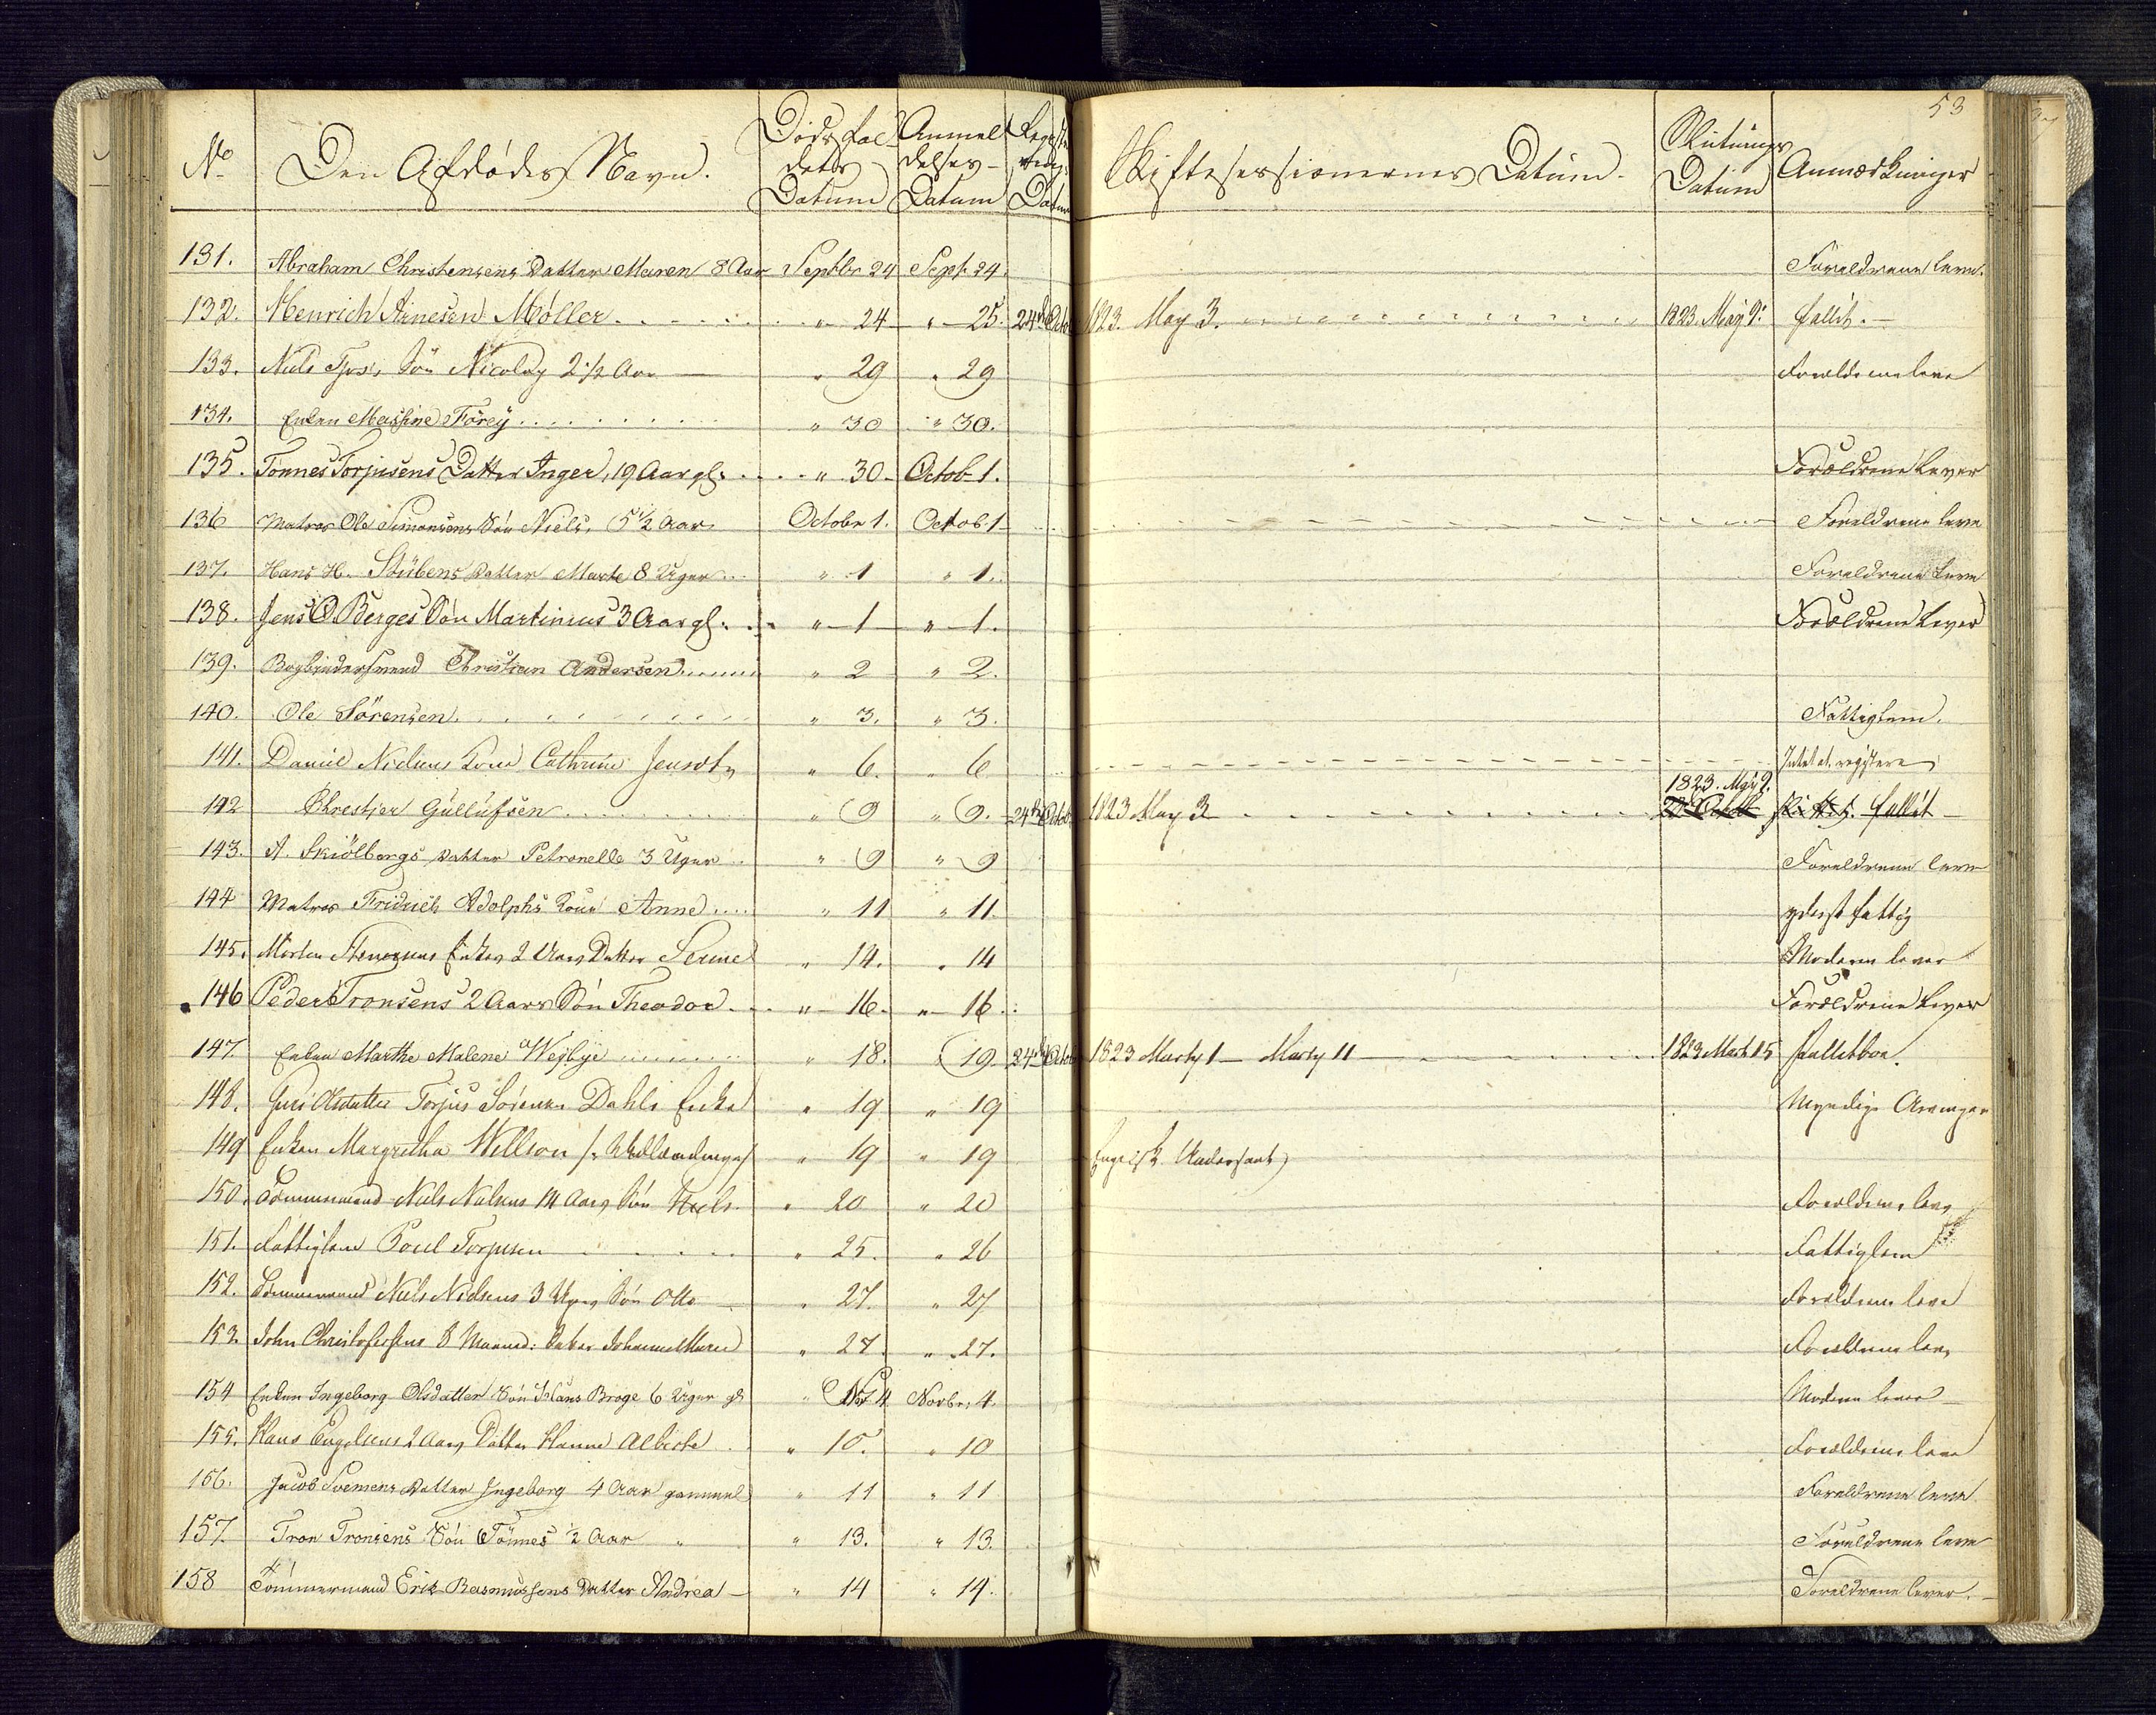 53
No Den Afdødes Navn. Dødsfaldets Datum Anmeldelses-Datum Registe- rings Datum Skiftesessionernes Datum Slutnings Datum Anmærkninger
131. Abraham Christensens Datter Maren 8 Aar Septbr 24 Sept. 24 Forældrene leve.
132. Henrich Arnesen Møller " 24 " 25. 24de Octob 1823. May 3. 1823. May 9. fallit.
133. Niels Tjøs's Søn Nicolay 2 1/2 Aar " 29 " 29 Forældrene leve
134. Enken Massine Förey " 30 " 30.
135. Tønnes Torjusens Datter Inger, 19 Aar gl. " 30 Octob 1. Forældrene Lever
136 Matros Ole Simonsens Søn Niels, 5 1/2 Aar October 1. Octob 1 Forældrene leve
137. Hans H. Stübens Datter Marte 8 Uger " 1 " 1. Forældrene leve
138. Jens O Berges Søn Martinius 3 Aar gl. " 1 " 1. Forældrene Lever
139. Bogbindersvend Christian Andersen " 2 " 2.
140. Ole Sörensen " 3. " 3. Fattiglem.
141. Daniel Nielsens Kone Cathrine Jensdtr " 6. " 6 Intet at registere
1823. May 9.
142 Chrestjer Gullufsen " 9 " 9. 24de Octob 1823 May 3 fallit
143. A. Skiölbergs Datter Petronelle 3 Uger " 9 " 9 Forældrene leve
144 Matros Fridrich Adolphs Kone Anne " 11 " 11. yderst fattig
145. Morten Enkes 2 Aars Datter " 14. " 14 Moderen lever
146 Peder Tronsens 2 Aars Søn Theodor " 16. " 16 Forældrene Lever
147. Enken Marthe Malene Weybye " 18. " 19. 24de Octob 1823 Marty 1 Marty 11 1823 Marty 15 fallitboe.
148. Olsdatter Torjus Sörensen Dahls Enke " 19 " 19 Myndige Arvinger
149 Enken Margretha Willson " 19 " 19 Engelsk Undersaat
150. Tømmermand Niels Nielsens 14 Aars Søn Niels " 20 " 20 Forældrene leve
151. Fattiglem Poul Torjusen " 25. " 26 Fattiglem
152. Tømmermand Niels Nielsens 3 Uger Søn Otto " 27. " 27 Forældrene leve
153. John Christophersens 8 Maaned: Datter Johanne Marie " 27. " 27. Forældrene leve
154 Enken Ingeborg Olsdatter Søn Hans Broge 6 Uger gl " Nov 4 Novbr. 4. Moderen lever
155. Hans Engelsens 2 Aars Datter Hanne Albertie " 10. " 10 Forældrene leve
156. Jacob Svensens Datter Ingeborg 4 Aar gammel " 11 " 11 Forældrene leve
157. Tron Tronsens Søn Tönnes 1/2 Aar " " 13. " 13. Forældrene leve
158 Tömmermand Erik Rasmussens Datter Andrea " 14 " 14. Forældrene lever.